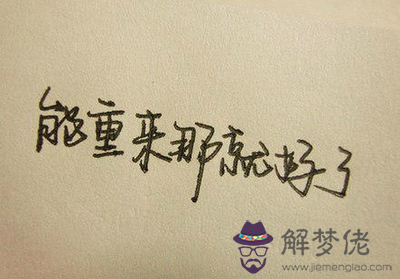 能重来那就好了
解梦佬
www.jiemenglao.com